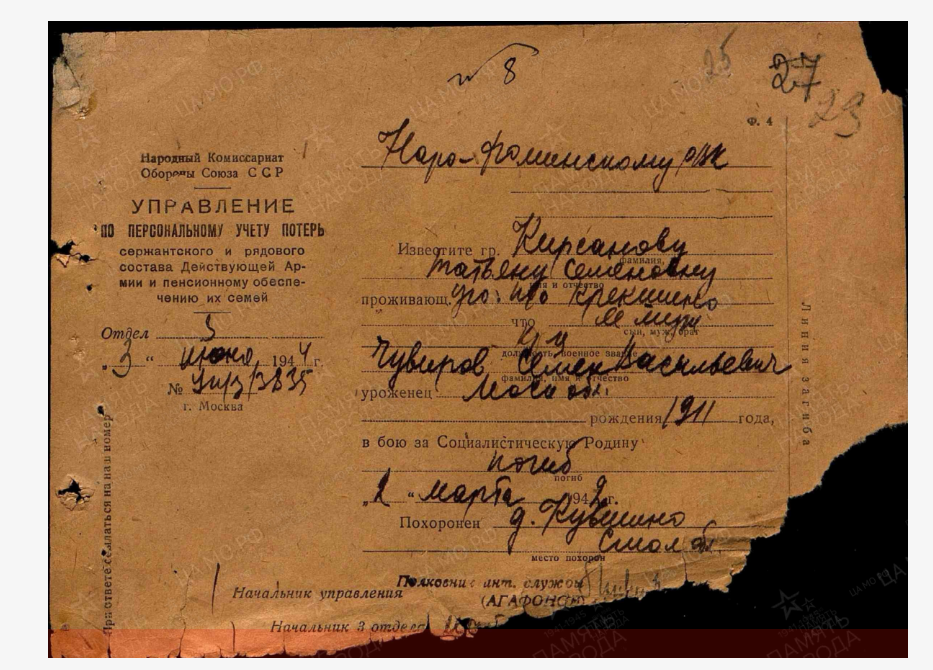 № 8
25
27
29
Ф. 4
Народный Комиссариат
Обороны Союза ССР
УПРАВЛЕНИЕ
ПО ПЕРСОНАЛЬНОМУ УЧЕТУ ПОТЕРЬ
сержантского и рядового
состава Действующей Ар-
мии и пенсионному обеспе-
чению их семей
Отдел 3
„3“ июня 1944 г.
№
г. Москва
При ответе ссылаться на наш номер
Наро-Фоминскому РВК
Известите гр. Кирсанову
фамилия,
Татьяну Семеновну
имя и отчество
проживающ. Крекшино
что муж
сын, муж, брат
кр-ц
должность, военное звание
Чувиров Семен Васильевич
фамилия, имя и отчество
уроженец Моск обл.
рождения 1911 года,
в бою за Социалистическую Родину
погиб
погиб
„2“ марта 1942 г.
Похоронен д. Кувшино
Смол обл
место похорон
Линия загиба
Начальник управления Полковник инт. службы
(АГАФОНОВ)
Начальник 3 отдела
ЦАМО.РФ
ПАМЯТЬ
НАРОДА